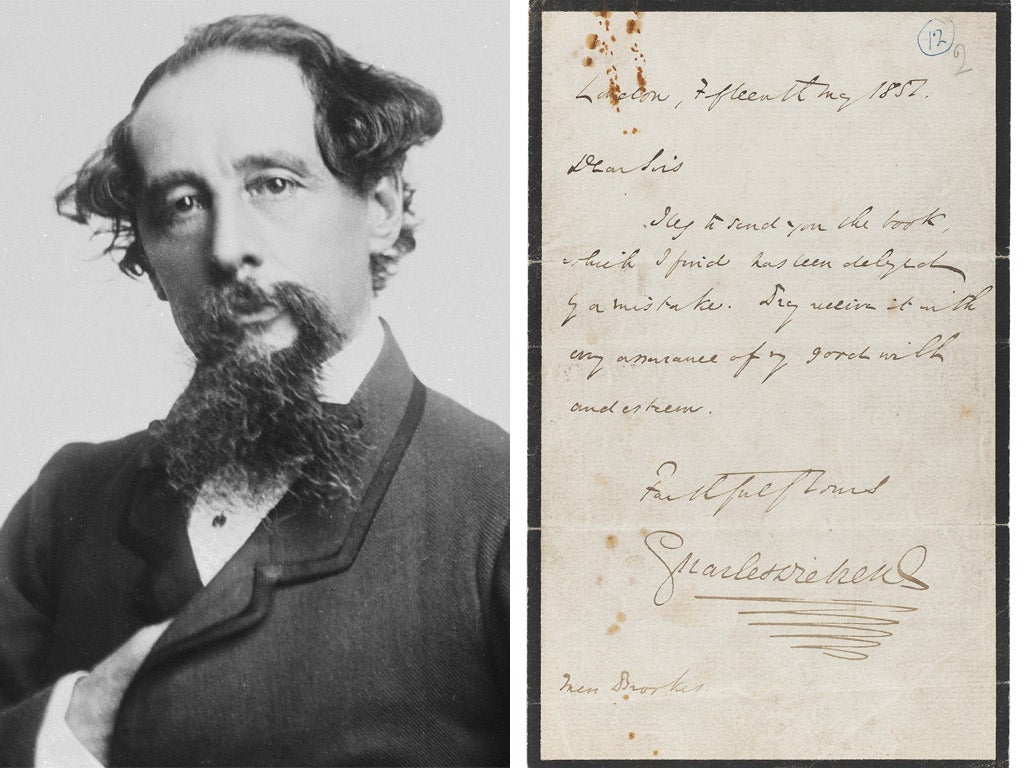 12
2
London, Fifteenth May 1851.
Dear Sirs
I beg to send you the book,
which I find has been delayed
by a mistake. Pray receive it with
my assurance of my good will
and esteem.
Faithfully Yours
Charles Dickens
Brookes